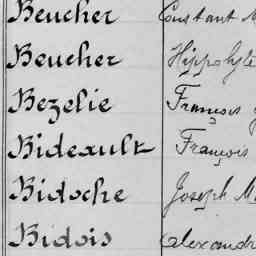 Beucher Constant M
Beucher Hippolyte
Bezelie François
Bideault François
Bidoche Joseph M
Bidois Alexandr